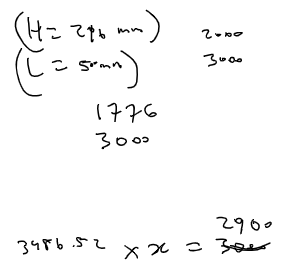 (H = 296 mm) 2000
(L = 50mm) 3000
1776
3000
2900
3486.52 × x = 3000